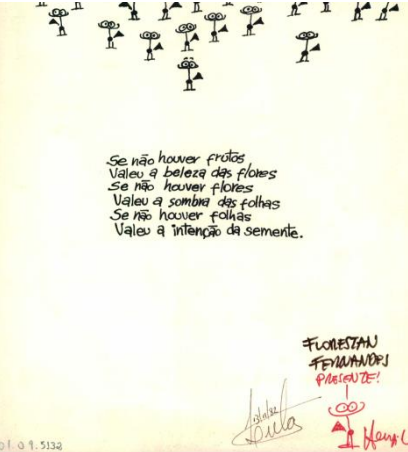 Se não houver frutos
Valeu a beleza das flores
Se não houver flores
Valeu a sombra das folhas
Se não houver folhas
Valeu a intenção da semente.
FLORESTAN
FERNANDES
PRESENTE!
Henfil
01.09.5132